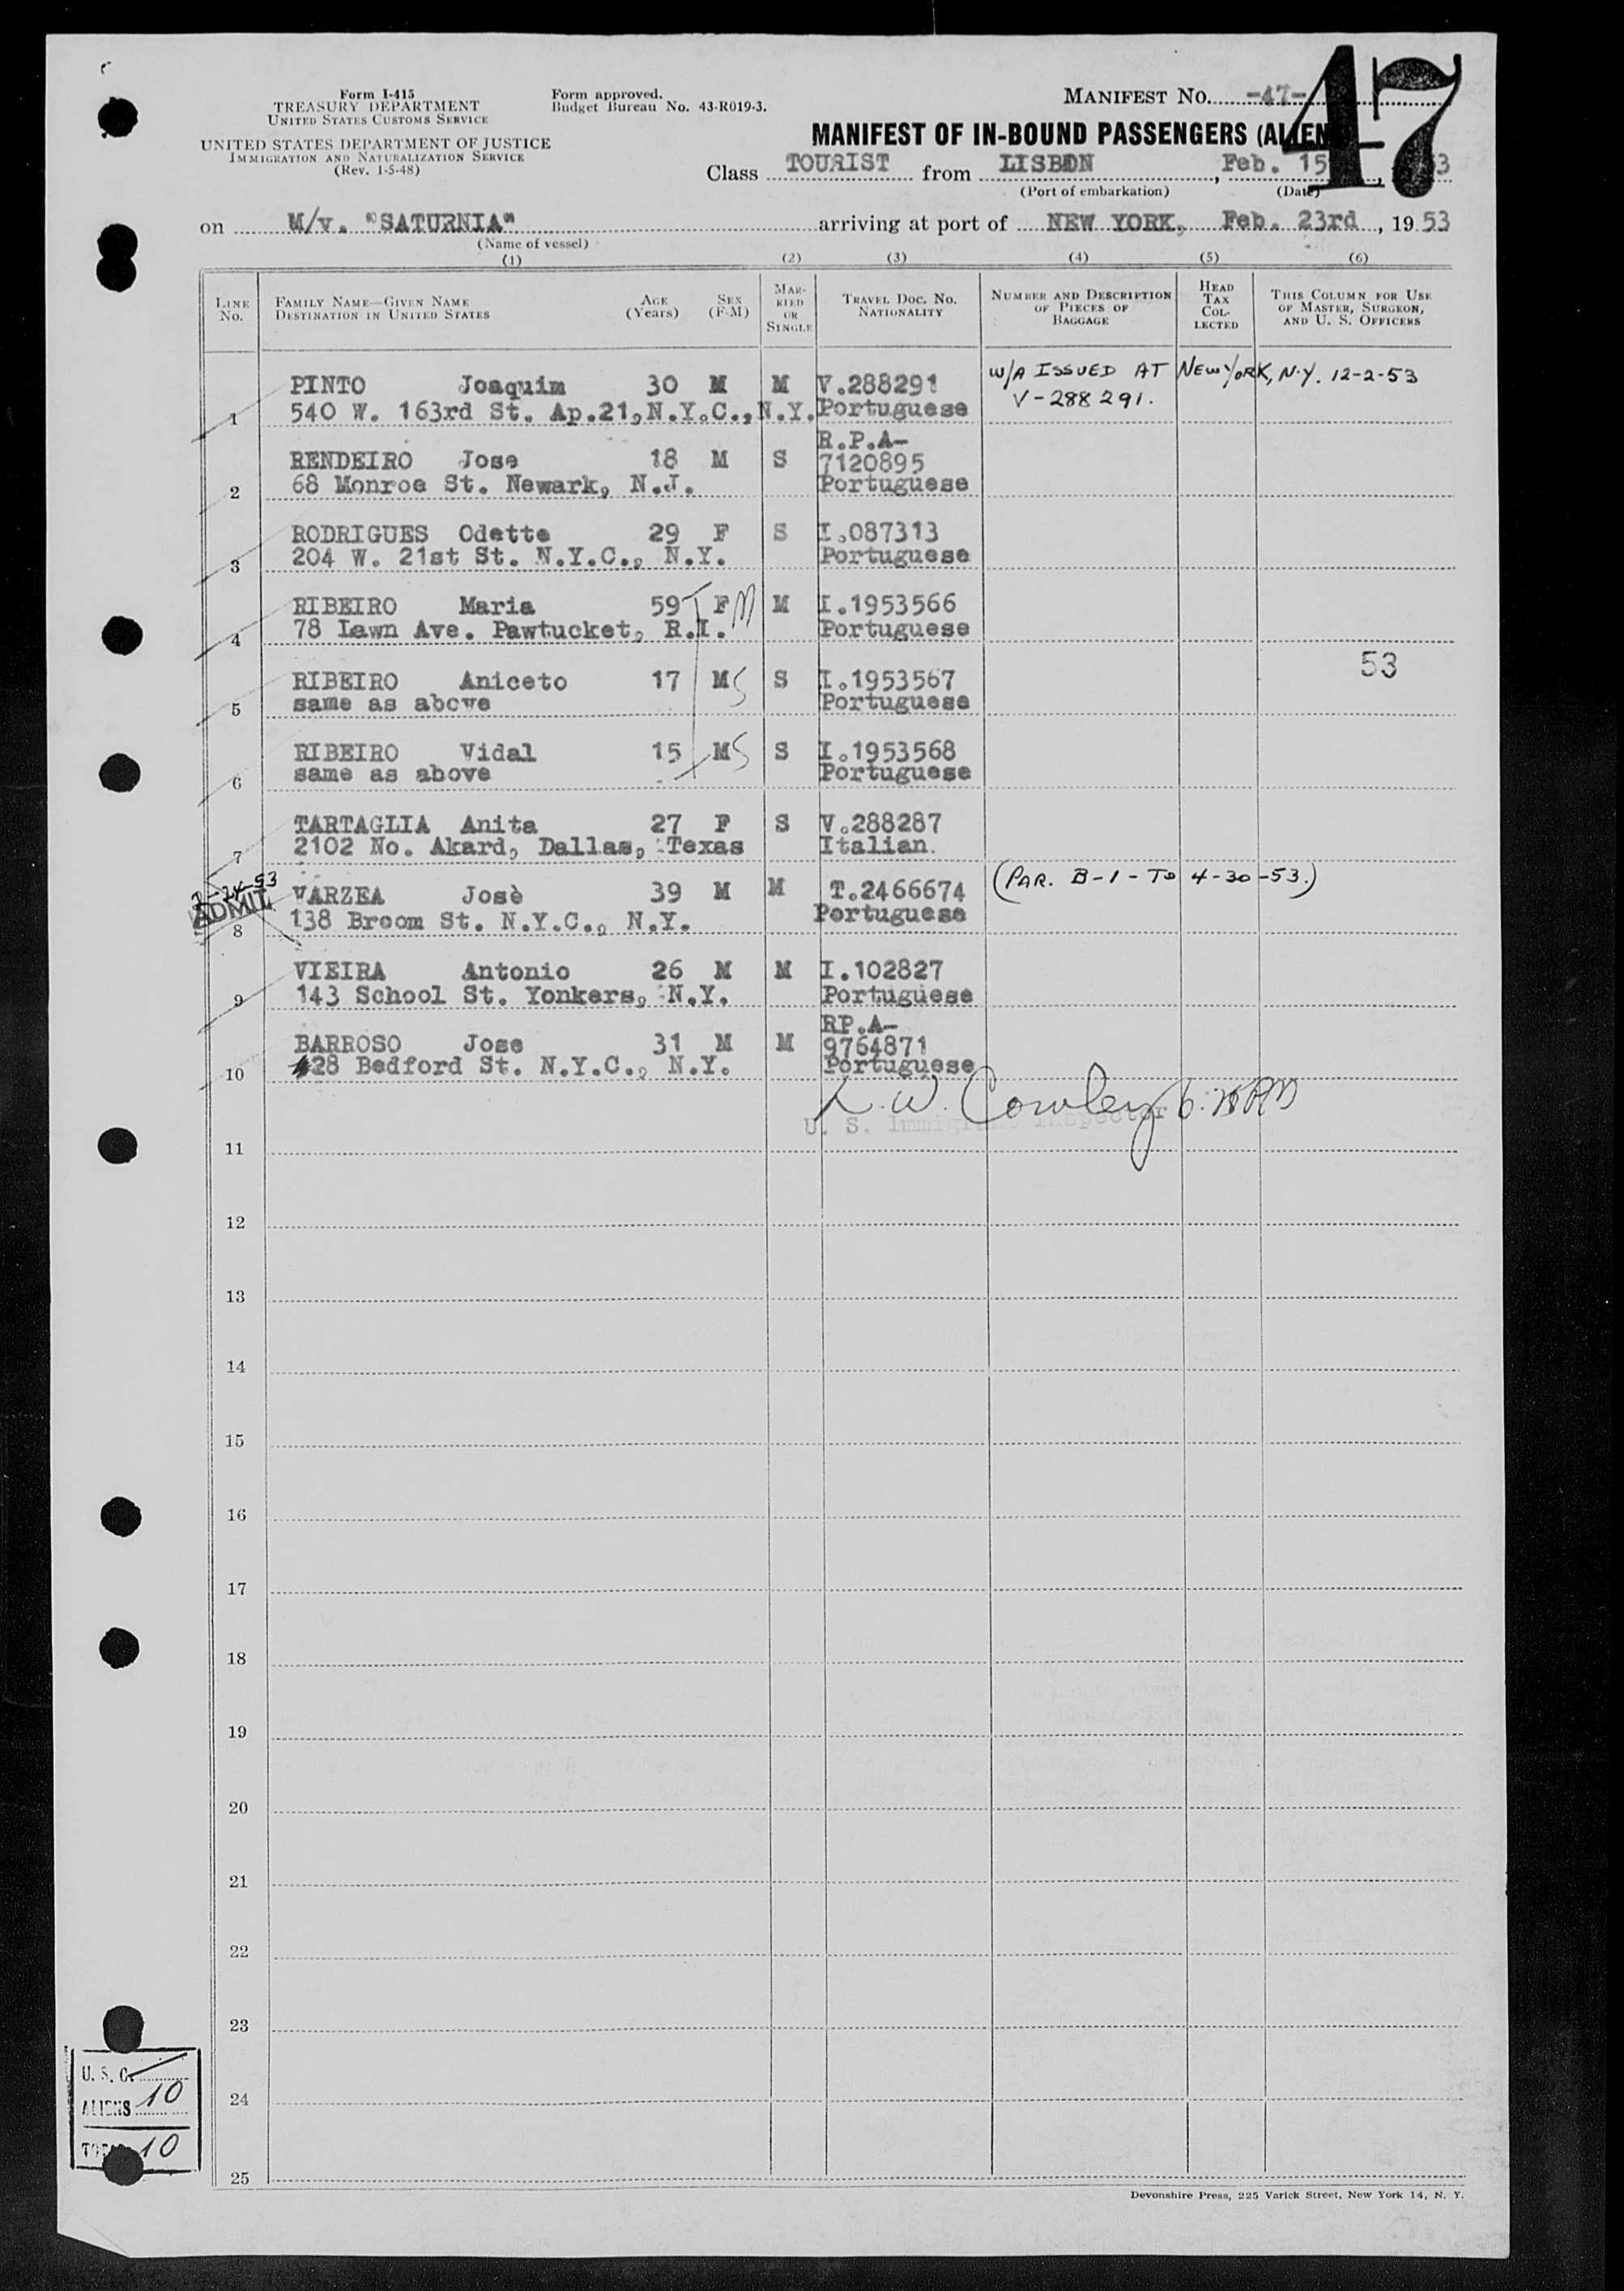 47
Form I-415
TREASURY DEPARTMENT
UNITED STATES CUSTOMS SERVICE
UNITED STATES DEPARTMENT OF JUSTICE
IMMIGRATION AND NATURALIZATION SERVICE
(Rev. 1-5-48)
Form approved.
Budget Bureau No. 43-R019-3.
MANIFEST NO. -47-
MANIFEST OF IN-BOUND PASSENGERS (ALIEN
Class TOURIST from LISBON, Feb. 15, 3
(Port of embarkation) (Date)
on M/v. "SATURNIA" arriving at port of NEW YORK, Feb. 23rd, 1953
(Name of vessel)
(1) (2) (3) (4) (5) (6)
LINE No. FAMILY NAME—GIVEN NAME DESTINATION IN UNITED STATES AGE (Years) SEX (F-M) MARRIED OR SINGLE TRAVEL DOC. NO. NATIONALITY NUMBER AND DESCRIPTION OF PIECES OF BAGGAGE HEAD TAX COLLECTED THIS COLUMN FOR USE OF MASTER, SURGEON, AND U. S. OFFICERS
PINTO Joaquim 30 M M V.288291 W/A ISSUED AT NEW YORK, N.Y. 12-2-53
1 540 W. 163rd St. Ap.21,N.Y.C.,N.Y. Portuguese V-288291.
R.P.A-
RENDEIRO Jose 18 M S 7120895
2 68 Monroe St. Newark, N.J. Portuguese
RODRIGUES Odette 29 F S I.087313
3 204 W. 21st St. N.Y.C., N.Y. Portuguese
RIBEIRO Maria 59 F M M I.1953566
4 78 Lawn Ave. Pawtucket, R.I. Portuguese
53
RIBEIRO Aniceto 17 M S S I.1953567
5 same as above Portuguese
RIBEIRO Vidal 15 M S S I.1953568
6 same as above Portuguese
TARTAGLIA Anita 27 F S V.288287
7 2102 No. Akard, Dallas, Texas Italian.
(PAR. B-1-TO 4-30-53.)
VARZEA Josè 39 M M T.2466674
ADMIT
8 138 Broom St. N.Y.C., N.Y. Portuguese
VIEIRA Antonio 26 M M I.102827
9 143 School St. Yonkers, N.Y. Portuguese
RP.A-
BARROSO Jose 31 M M 9764871
10 28 Bedford St. N.Y.C., N.Y. Portuguese
L. W. Cowley
U. S. Immigrant Inspector
11
12
13
14
15
16
17
18
19
20
21
22
23
24
25
U. S. C.
ALIENS 10
TOTAL 10
Devonshire Press, 225 Varick Street, New York 14, N. Y.